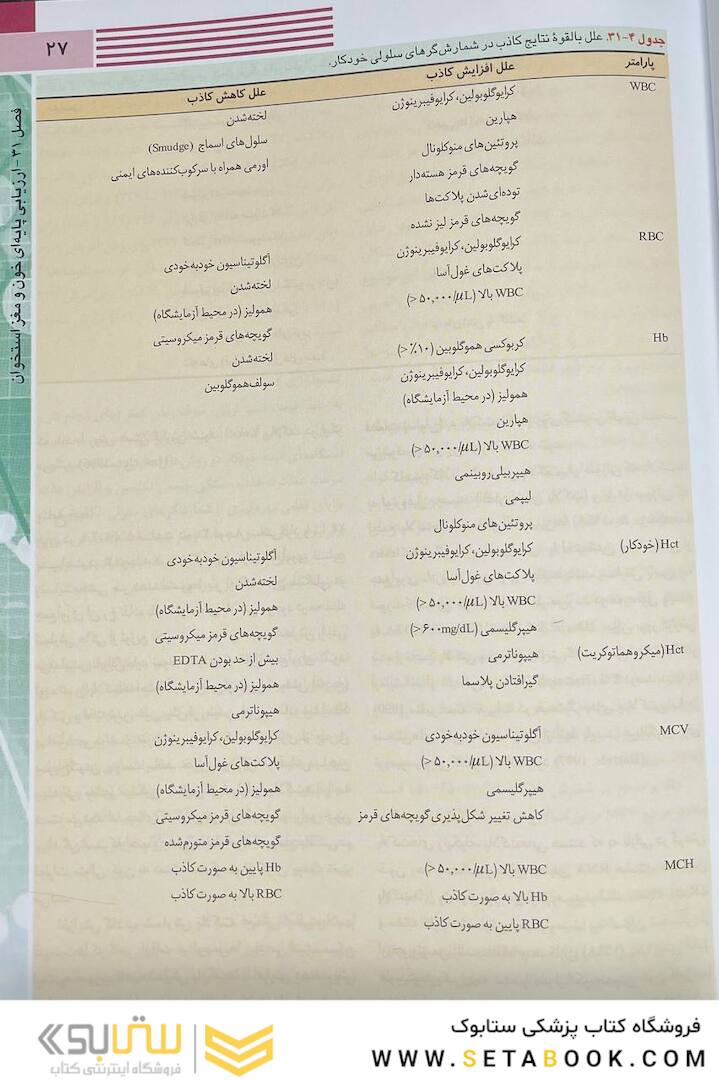 ۲۷
فصل ۳۱ - ارزیابی پایه‌ای خون و مغز استخوان
جدول ۴-۳۱. علل بالقوهٔ نتایج کاذب در شمارش‌گرهای سلولی خودکار.
پارامتر علل افزایش کاذب علل کاهش کاذب
WBC کرایوگلوبولین، کرایوفیبرینوژن لخته‌شدن
هپارین سلول‌های اسماج (Smudge)
پروتئین‌های منوکلونال اورمی همراه با سرکوب‌کننده‌های ایمنی
گویچه‌های قرمز هسته‌دار
توده‌ای‌شدن پلاکت‌ها
گویچه‌های قرمز لیز نشده
RBC کرایوگلوبولین، کرایوفیبرینوژن آگلوتیناسیون خودبه‌خودی
پلاکت‌های غول‌آسا لخته‌شدن
WBC بالا (۵۰,۰۰۰/µL <) همولیز (در محیط آزمایشگاه)
گویچه‌های قرمز میکروسیتی
Hb کربوکسی هموگلوبین (۱۰٪ <) لخته‌شدن
کرایوگلوبولین، کرایوفیبرینوژن سولف‌هموگلوبین
همولیز (در محیط آزمایشگاه)
هپارین
WBC بالا (۵۰,۰۰۰/µL <)
هیپربیلی‌روبینمی
لیپمی
پروتئین‌های منوکلونال
Hct (خودکار) کرایوگلوبولین، کرایوفیبرینوژن آگلوتیناسیون خودبه‌خودی
پلاکت‌های غول‌آسا لخته‌شدن
WBC بالا (۵۰,۰۰۰/µL <) همولیز (در محیط آزمایشگاه)
هیپرگلیسمی (۶۰۰mg/dL <) گویچه‌های قرمز میکروسیتی
Hct (میکروهماتوکریت) هیپوناترمی بیش از حد بودن EDTA
گیرافتادن پلاسما همولیز (در محیط آزمایشگاه)
هیپوناترمی
MCV آگلوتیناسیون خودبه‌خودی کرایوگلوبولین، کرایوفیبرینوژن
WBC بالا (۵۰,۰۰۰/µL <) پلاکت‌های غول‌آسا
هیپرگلیسمی همولیز (در محیط آزمایشگاه)
کاهش تغییر شکل‌پذیری گویچه‌های قرمز گویچه‌های قرمز میکروسیتی
گویچه‌های قرمز متورم‌شده
MCH WBC بالا (۵۰,۰۰۰/µL <) Hb پایین به صورت کاذب
Hb بالا به صورت کاذب RBC بالا به صورت کاذب
RBC پایین به صورت کاذب
فروشگاه کتاب پزشکی ستابوک
WWW.SETABOOK.COM
ستابوک
فروشگاه اینترنتی کتاب